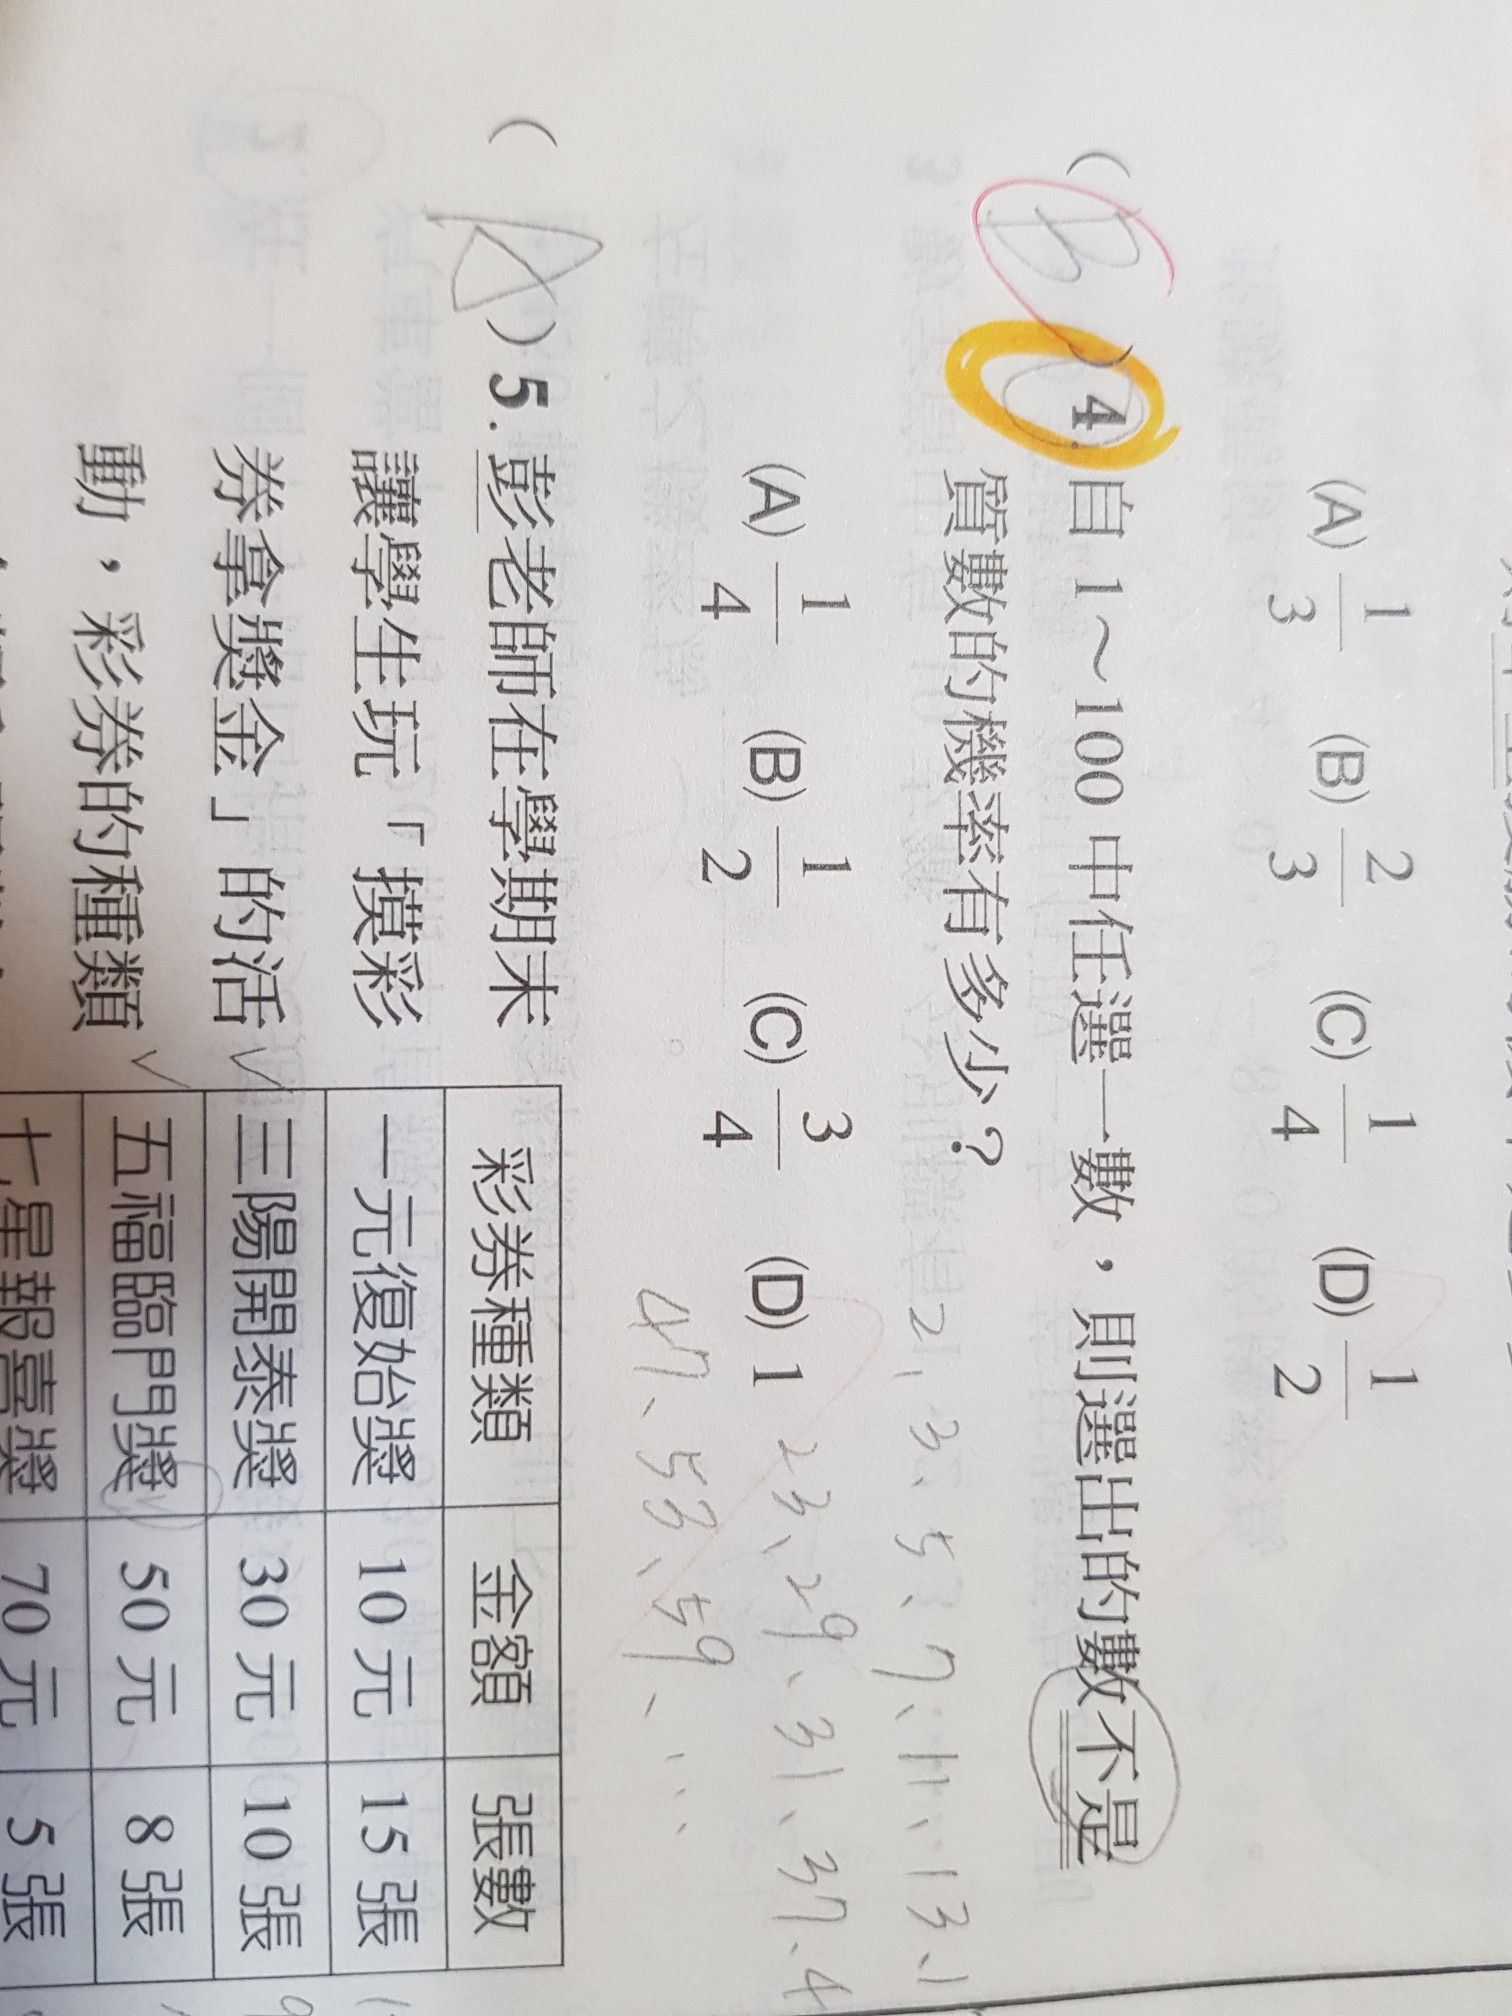 (A) 1/3 (B) 2/3 (C) 1/4 (D) 1/2
( B ) 4. 自 1～100 中任選一數，則選出的數不是
質數的機率有多少？
(A) 1/4 (B) 1/2 (C) 3/4 (D) 1
2、3、5、7、11、13、
23、29、31、37、4
47、53、59、...
( A ) 5. 彭老師在學期末
讓學生玩「摸彩
券拿獎金」的活
動，彩券的種類
彩券種類 金額 張數
一元復始獎 10 元 15 張
三陽開泰獎 30 元 10 張
五福臨門獎 50 元 8 張
七星報喜獎 70 元 5 張